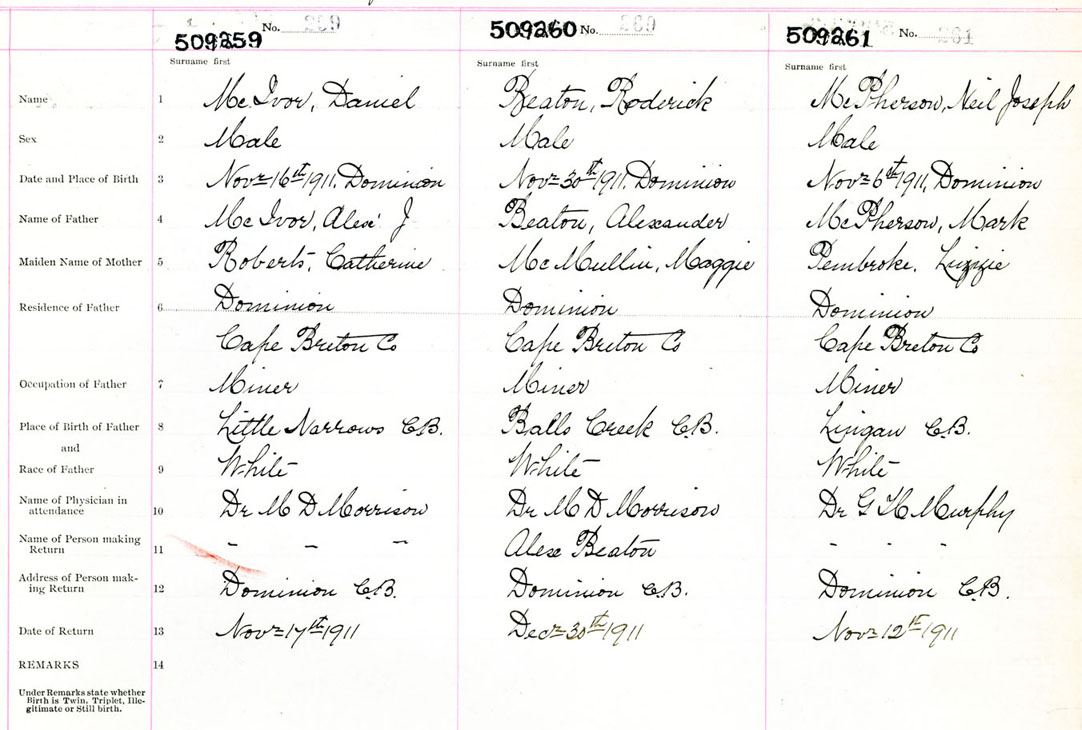 509259 No. 509260 No. 509261 No. 261
Surname first Surname first Surname first
Name 1 Mc Ivor, Daniel Beaton, Roderick Mc Pherson, Neil Joseph
Sex 2 Male Male Male
Date and Place of Birth 3 Novr 16th 1911, Dominion Novr 30th 1911, Dominion Novr 6th 1911, Dominion
Name of Father 4 Mc Ivor, Alex' J Beaton, Alexander Mc Pherson, Mark
Maiden Name of Mother 5 Roberts, Catherine Mc Mullin, Maggie Pembroke, Lizzie
Residence of Father 6 Dominion Dominion Dominion
Cape Breton Co Cape Breton Co Cape Breton Co
Occupation of Father 7 Miner Miner Miner
Place of Birth of Father 8 Little Narrows C.B. Balls Creek C.B. Lingan C.B.
and
Race of Father 9 White White White
Name of Physician in
attendance 10 Dr M D Morrison Dr M D Morrison Dr G H Murphy
Name of Person making
Return 11 - - - Alex Beaton - - -
Address of Person mak-
ing Return 12 Dominion C.B. Dominion C.B. Dominion C.B.
Date of Return 13 Novr 17th 1911 Decr 30th 1911 Novr 12th 1911
REMARKS 14
Under Remarks state whether
Birth is Twin, Triplet, Ille-
gitimate or Still birth.